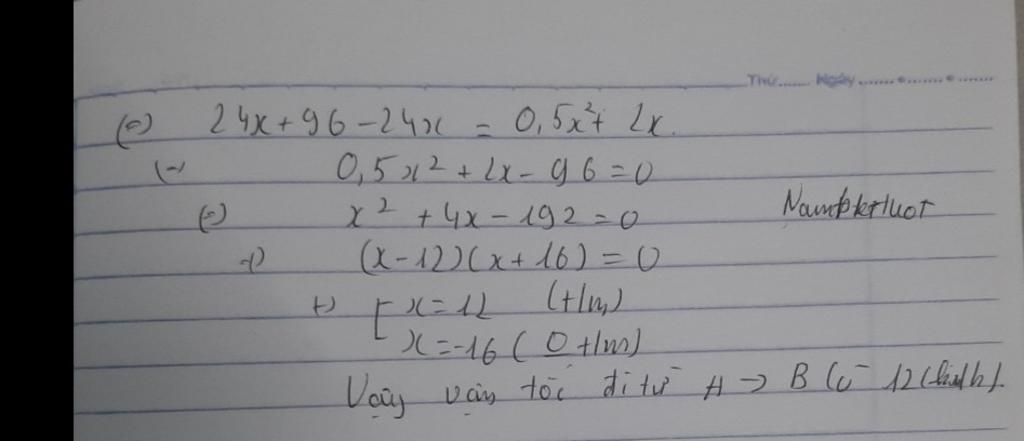 Thứ....... Ngày.......
(=) 24x+96-24x = 0,5x²+ 2x.
(-) 0,5x² + 2x - 96 = 0
(=) x² + 4x - 192 = 0
(x-12)(x+16) = 0
x = 12 (t/m)
x = -16 (0 t/m)
Vậy vận tốc đi từ A -> B là 12 (km/h).